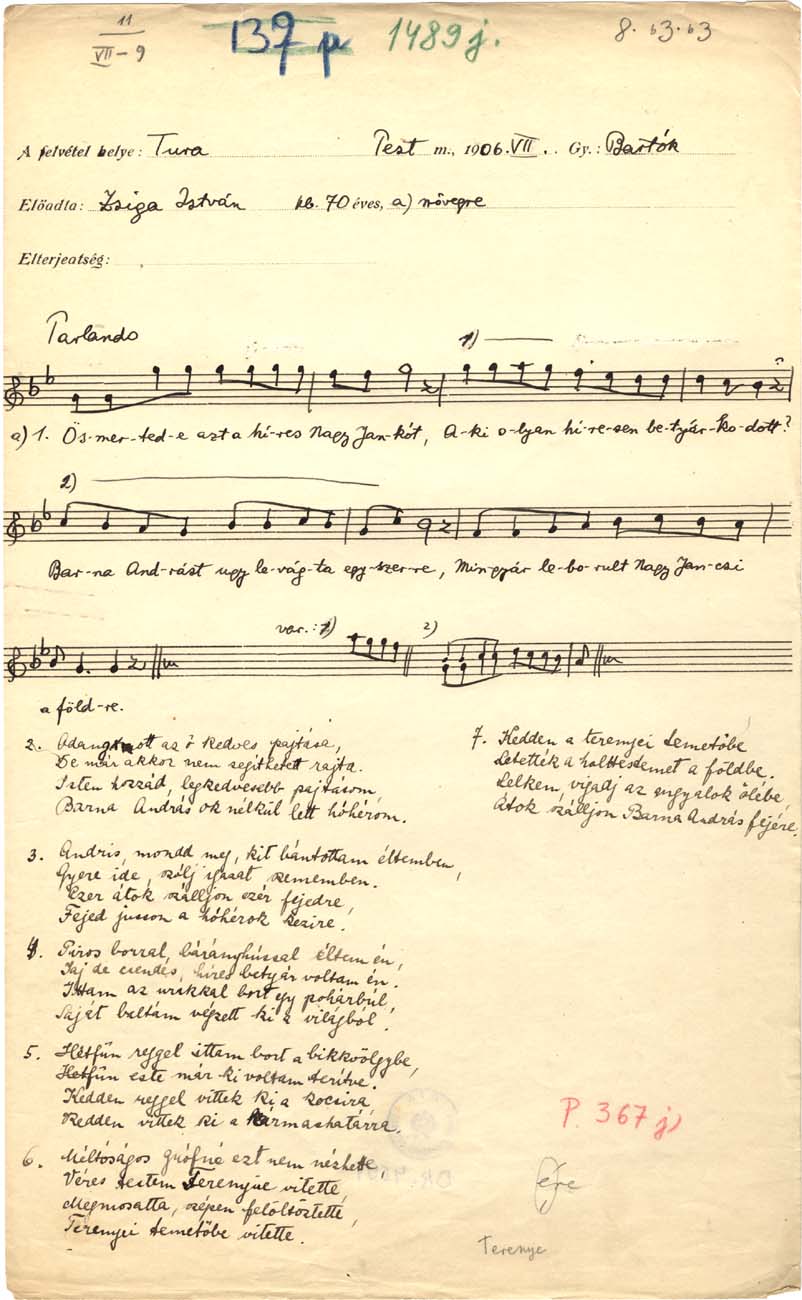 11
VII-9
139 p
1489 j.
8. 63. 63
A felvétel helye: Tura Pest m., 1906. VII. Gy.: Bartók
Előadta: Zsiga István kb. 70 éves, a) szövegre
Elterjeatség:
Parlando
1)
a) 1. Ös-mer-ted-e azt a hí-res Nagy Jan-kót, A-ki o-lyan hí-re-sen be-tyár-ko-dott?
2)
Bar-na And-rást ugy le-vág-ta egy-szer-re, Mingyár le-bo-rult Nagy Jan-csi
var.: 1) 2)
a föld-re.
2. Odang ott az ő kedves pajtása,
De már akkor nem segithetett rajta.
Isten hozzád, legkedvesebb pajtásom,
Barna András ok nélkül lett hóhérom.
3. Andris, mondd meg, kit bántottam éltemben,
Gyere ide, szólj igazat szememben.
Ezer átok szálljon ezér fejedre,
Fejed jusson a hóhérok kezire!
4. Piros borral, bárányhússal éltem én,
Jaj de csendés, híres betyár voltam én.
Ittam az urakkal bort egy pohárbúl,
Saját baltám végzett ki a világból!
5. Hétfűn reggel ittam bort a bikkvölgybe,
Hétfűn este már ki voltam terítve.
Kedden reggel vittek ki a kocsira
Kedden vittek ki a hármashatárra.
6. Méltóságos grófné ezt nem nézhette,
Véres testem Terenyire vitette,
Megmosatta, szépen felöltöztette,
Terenyei temetőbe vitette.
7. Kedden a terenyei temetőbe
Letették a holttestemet a földbe.
Lelkem, vigadj az angyalok ölébe,
Átok szálljon Barna András fejére.
P. 367 j)
Terenye